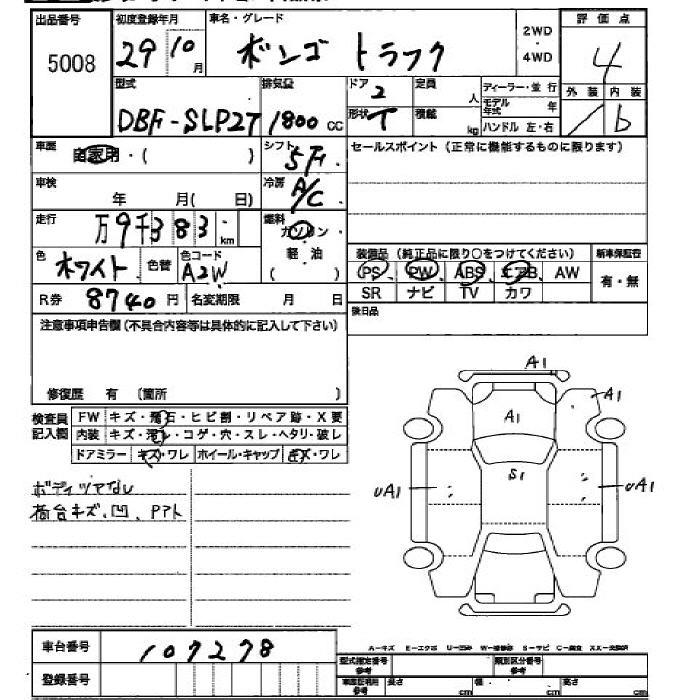 出品番号 初度登録年月 車名・グレード 評価点
5008 29 10月 ボンゴ トラック 2WD・4WD 4
型式 排気量 ドア 2 定員 人 ディーラー・並行 外装 内装
DBF-SLP27 1800cc 形状 T 積載 kg モデル年式 年 ハンドル 左・右 b
車歴 自家用・( ) シフト 5F セールスポイント(正常に機能するものに限ります)
車検 年 月( 日) 冷房 A/C
走行 万9千383 km 燃料 ガソリン・軽油 ( )
色 ホワイト 色替 色コード A2W
装備品(純正品に限り○をつけてください) 新車保証書
PS PW ABS エアB AW 有・無
SR ナビ TV カワ
R券 8740円 名変期限 月 日
後日品
注意事項申告欄(不具合内容等は具体的に記入して下さい)
修復歴 有 〔箇所 〕
検査員記入欄
FW キズ・飛石・ヒビ割・リペア跡・X要
内装 キズ・汚レ・コゲ・穴・スレ・ヘタリ・破レ
ドアミラー キズ・ワレ ホイール・キャップ キズ・ワレ
ボディツヤなし
荷台キズ、凹、Pアト
A1
A1
A1
S1
UA1
UA1
A-キズ E-エクボ U-凹み W-補修跡 S-サビ C-腐食 XX-交換済
車台番号 107278
登録番号
型式指定番号 参考 類別区分番号 参考
車庫証明用 参考 長さ cm 幅 cm 高さ cm